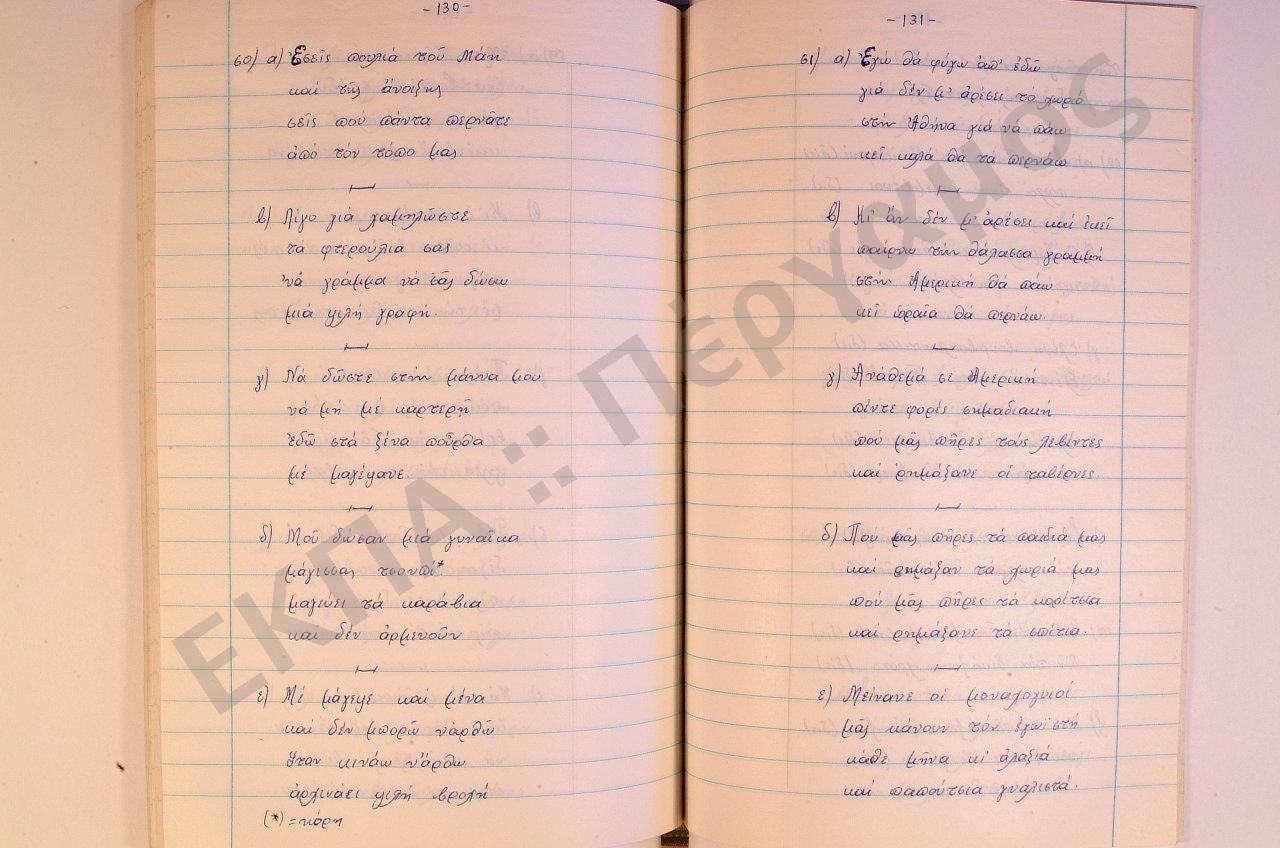 -130-
60) α) Ἐσεῖς πουλιά τοῦ Μάη
καί τῆς ἄνοιξης
σεῖς πού πάντα περνᾶτε
ἀπό τόν τόπο μας
β) Λίγο γιά χαμηλῶστε
τά φτερούλια σας
νά γράμμα νά σᾶς δώσω
μιά ψιλή γραφή.
γ) Νά δῶστε στήν μάννα μου
νά μή μέ καρτερῇ
ἐδῶ στά ξένα ποὖρθα
μέ μαγέψανε.
δ) Μοῦ δώσαν μιά γυναῖκα
μάγισσας τσουπί*
μαγεύει τά καράβια
και δέν ἀρμενοῦν
ε) Μέ μάγεψε καί μένα
καί δέν μπορῶ νἀρθῶ
ὅταν κινάω νἄρθω
ἀρχινάει ψιλή βροχή
(*) = κόρη
-131-
61) α) Ἐγώ θά φύγω ἀπ' ἐδῶ
γιά δέν μ' ἀρέσει τό χωριό
στήν Ἀθήνα γιά νά πάω
κεῖ καλά θά τά περνάω
β) Κι' ἄν δέν μ' ἀρέσει καί ἐκεῖ
παίρνω τήν θάλασσα γραμμή
στήν Ἀμερική θά πάω
κεῖ ὡραῖα θά περνάω.
γ) Ἀνάθεμά σε Ἀμερική
πέντε φορές σημαδιακή
πού μᾶς πῆρες τούς λεβέντες
καί ρημάξανε οἱ ταβέρνες.
δ) Πού μᾶς πῆρες τά παιδιά μας
καί ρημάξαν τά χωριά μας
πού μᾶς πῆρες τά κορίτσια
καί ρημάξανε τά σπίτια.
ε) Μείνανε οἱ μοναχογυιοί
μᾶς κάνουν τόν ἐγωϊστή
κάθε μῆνα κι' ἀλαξιά
καί παπούτσια γυαλιστά.
ΕΚΠΑ :: Πέργαμος